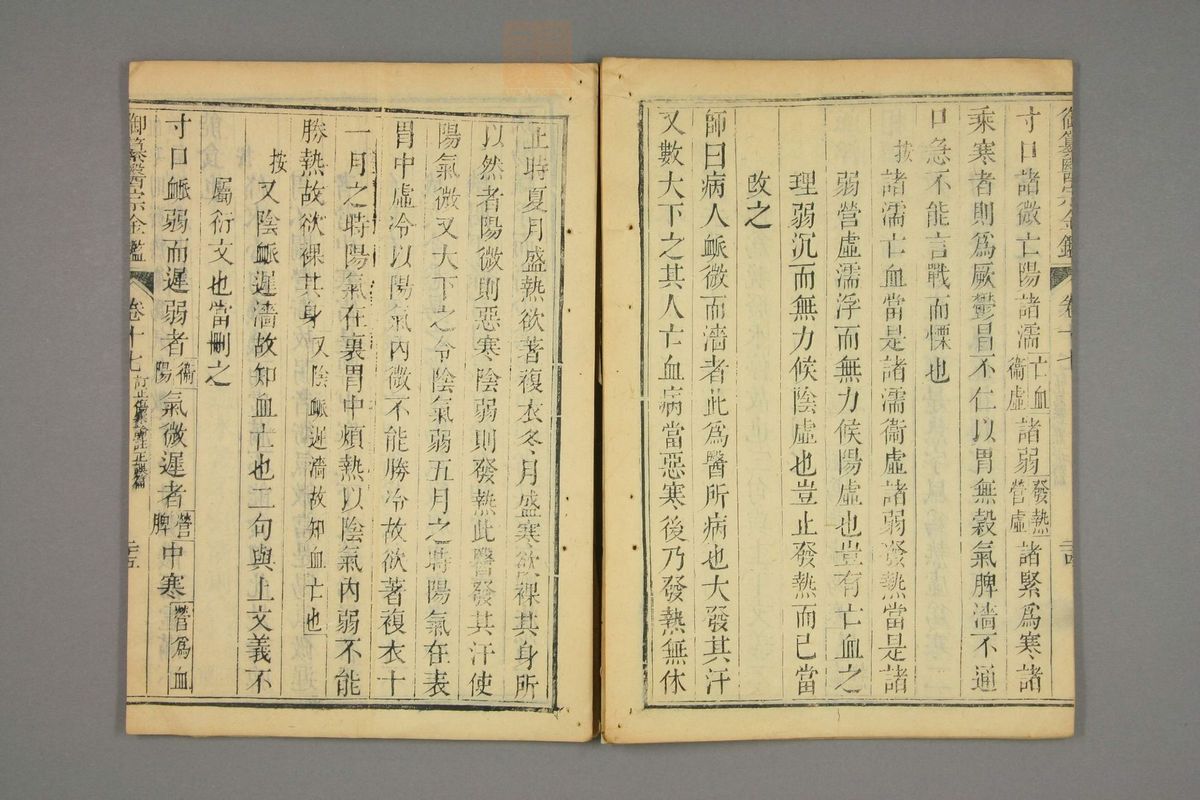 御纂醫宗金鑑 卷十七 二十四
寸口諸微亡陽諸濡亡血衞虛諸弱發熱營虛諸緊爲寒諸
乘寒者則爲厥鬱冒不仁以胃無穀氣脾濇不通
口急不能言戰而慄也
按諸濡亡血當是諸濡衞虛諸弱發熱當是諸
弱營虛濡浮而無力候陽虛也豈有亡血之
理弱沉而無力候陰虛也豈止發熱而已當
改之
師曰病人脈微而濇者此爲醫所病也大發其汗
又數大下之其人亡血病當惡寒後乃發熱無休
止時夏月盛熱欲著複衣冬月盛寒欲裸其身所
以然者陽微則惡寒陰弱則發熱此醫發其汗使
陽氣微又大下之令陰氣弱五月之時陽氣在表
胃中虛冷以陽氣內微不能勝冷故欲著複衣十
一月之時陽氣在裏胃中煩熱以陰氣內弱不能
勝熱故欲裸其身又陰脈遲濇故知血亡也
按又陰脈遲濇故知血亡也二句與上文義不
屬衍文也當刪之
寸口脈弱而遲弱者衞陽氣微遲者營脾中寒營爲血
御纂醫宗金鑑 卷十七 訂正傷寒論註正誤篇